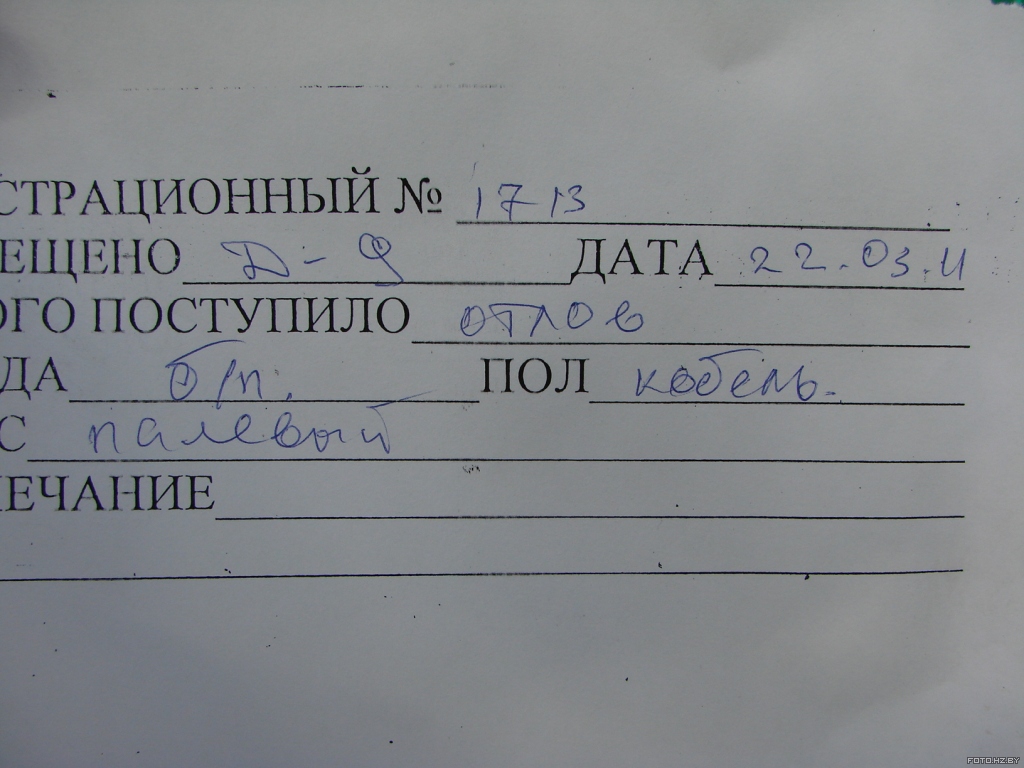 СТРАЦИОННЫЙ № 1713
ЕЩЕНО Д-9 ДАТА 22.03.11
ОГО ПОСТУПИЛО отлов
ДА б/п. ПОЛ кобель.
С палевый
МЕЧАНИЕ
FOTO.HZ.BY